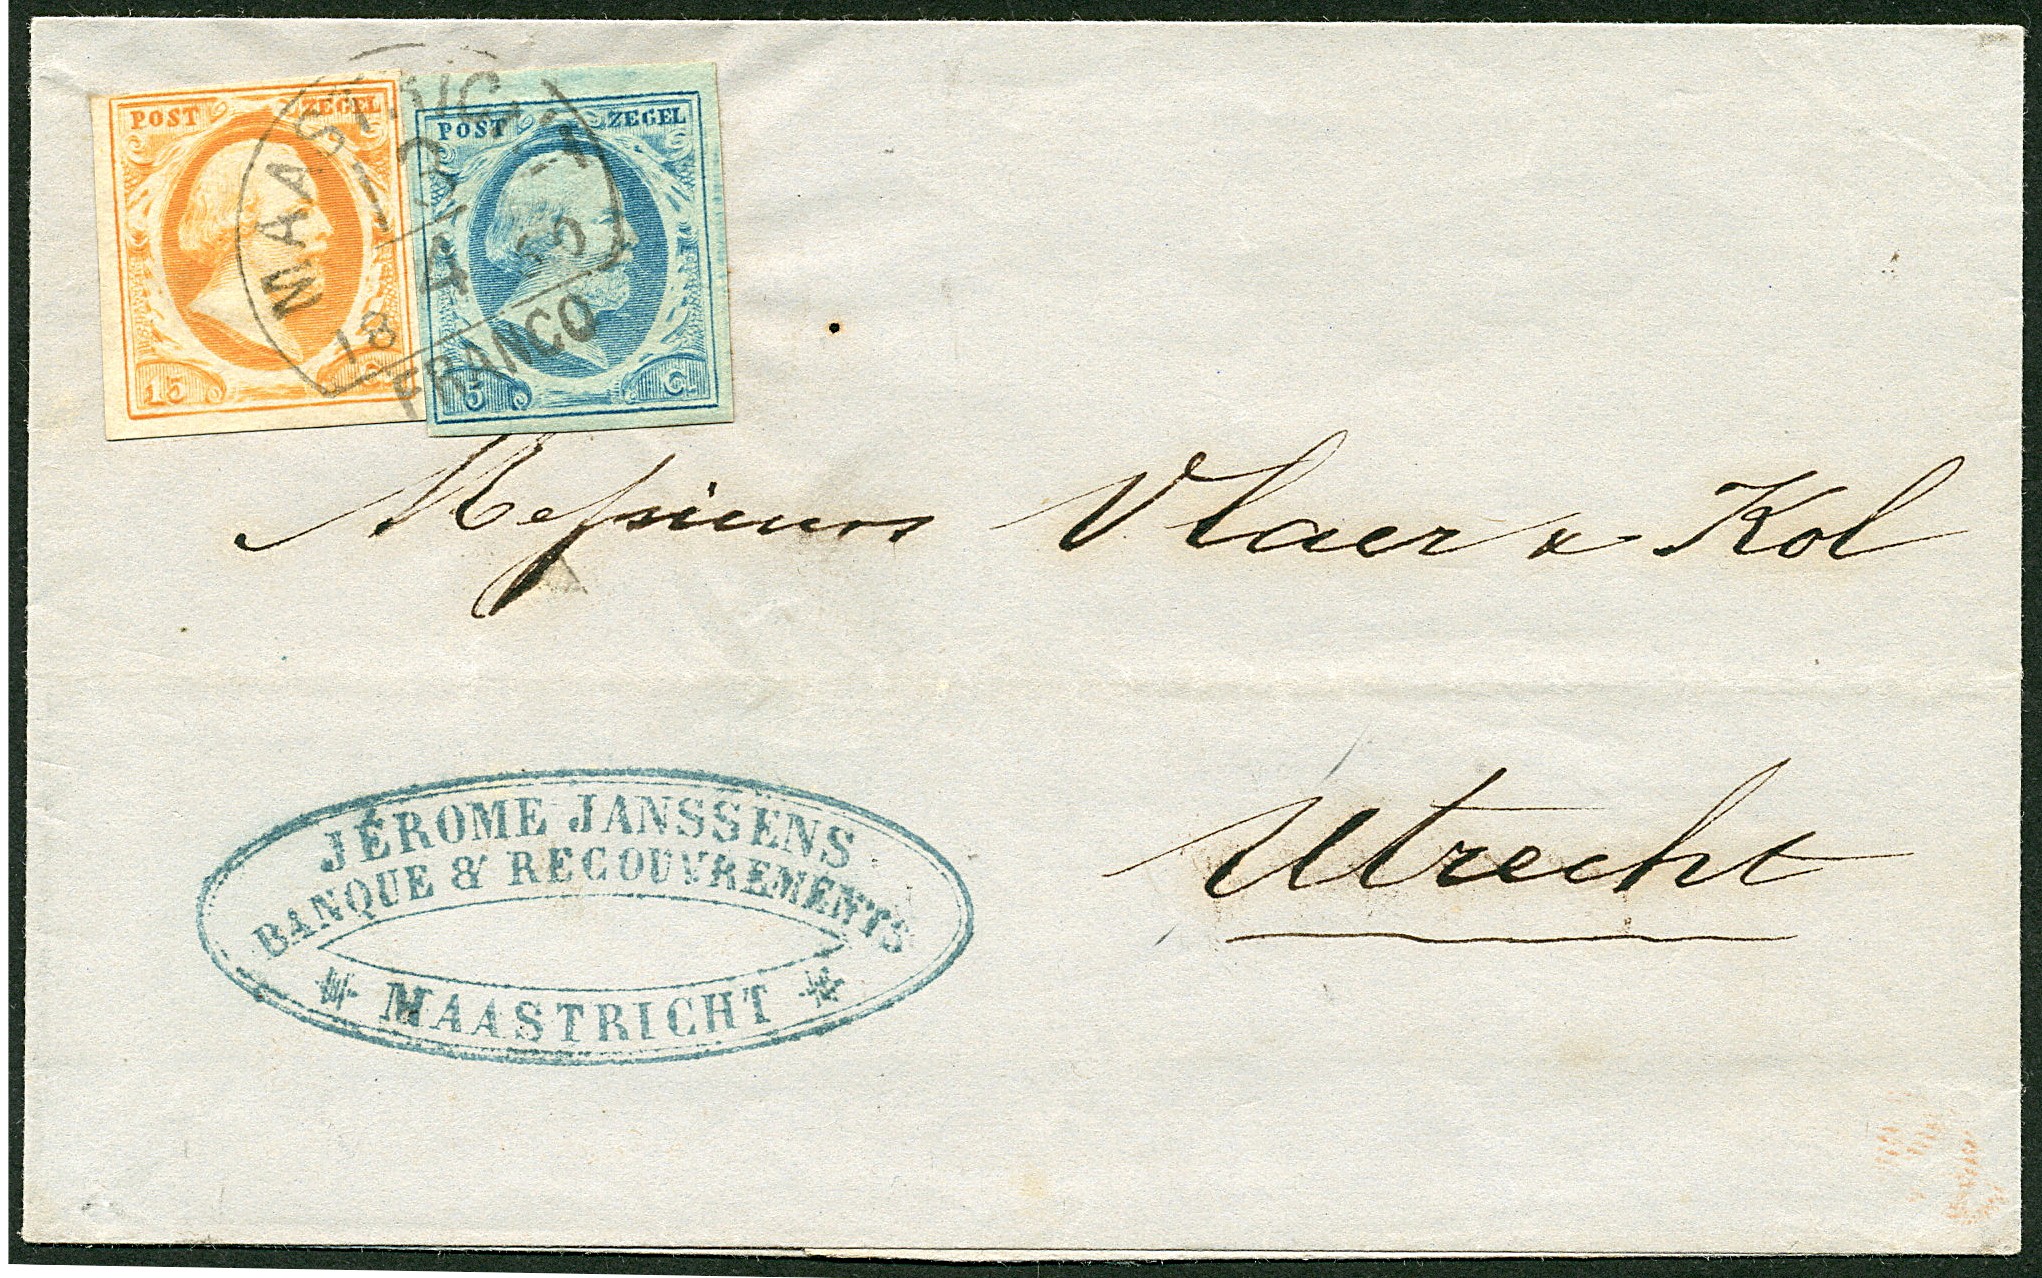 POST ZEGEL
15
POST ZEGEL
5 Ct
MAASTRICHT
18 60
FRANCO
Messieurs Vlaer & Kol
Utrecht
JÉROME JANSSENS
BANQUE & RECOUVREMENTS
MAASTRICHT